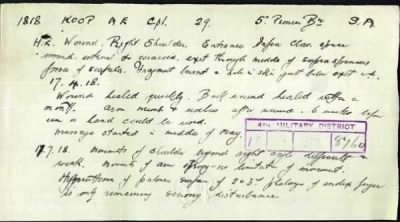 1818 KOOP A R Cpl. 29. 5th Pioneer Bn S.A
Wound, Right Shoulder. Entrance Infra Clav. space
wound, external to coracoid, exit through middle of supraspinous
fossa of scapula. Fragment burst a hole in skin just below exit wd.
17.4.18.
Wound healed quickly. Bullet wound healed within a
month. Arm numb & useless after wound. 6 weeks before
hand could be used.
Massage started in middle of May.
4TH MILITARY DISTRICT
8760
17.7.18. Movements of shoulder beyond right angle difficult &
weak. Movements of arm no limitation of movement.
of palmar surface of 2nd & 3rd phalanges of index finger
is only remaining sensory disturbance.